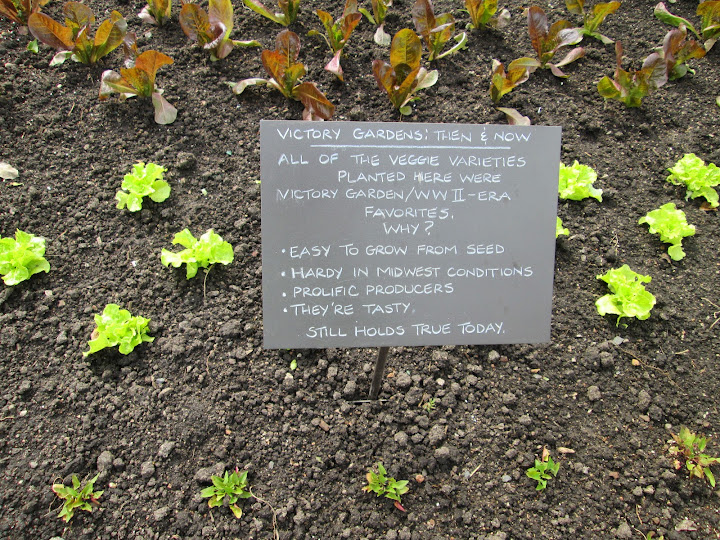 VICTORY GARDENS: THEN & NOW
ALL OF THE VEGGIE VARIETIES
PLANTED HERE WERE
VICTORY GARDEN/WW II-ERA
FAVORITES.
WHY?
• EASY TO GROW FROM SEED
• HARDY IN MIDWEST CONDITIONS
• PROLIFIC PRODUCERS
• THEY'RE TASTY.
STILL HOLDS TRUE TODAY.